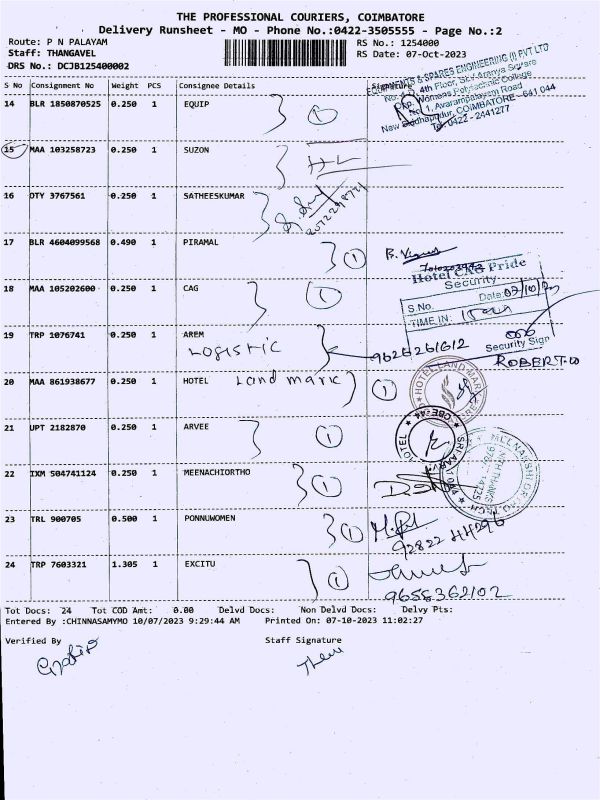 THE PROFESSIONAL COURIERS, COIMBATORE
Delivery Runsheet - MO - Phone No.:0422-3505555 - Page No.:2
Route: P N PALAYAM RS No.: 1254000
Staff: THANGAVEL RS Date: 07-Oct-2023
DRS No.: DCJB125400002
S No Consignment No Weight PCS Consignee Details Signature
& SPARES ENGINEERING (I) PVT LTD
4th Floor, Sri Aranya Square
Opp. Womens Polytechnic College
No: 1, Avarampalayam Road
New Siddhapudur, COIMBATORE - 641 044
Tel: 0422 - 2441277
14 BLR 1850870525 0.250 1 EQUIP 1
15 MAA 103258723 0.250 1 SUZON
16 OTY 3767561 0.250 1 SATHEESKUMAR
17 BLR 4604099568 0.490 1 PIRAMAL 1
Hotel CAG Pride
Security
18 MAA 105202600 0.250 1 CAG 1
S.No. Date:
TIME IN:
19 TRP 1076741 0.250 1 AREM
LOGISTIC 9626261612
Security Sign
20 MAA 861938677 0.250 1 HOTEL Land mark 1
HOTEL LANDMARK
21 UPT 2182870 0.250 1 ARVEE 1
22 IXM 504741124 0.250 1 MEENACHIORTHO 1
23 TRL 900705 0.500 1 PONNUWOMEN 1
24 TRP 7603321 1.305 1 EXCITU 1
9655362102
Tot Docs: 24 Tot COD Amt: 0.00 Delvd Docs: Non Delvd Docs: Delvy Pts:
Entered By :CHINNASAMYMO 10/07/2023 9:29:44 AM Printed On: 07-10-2023 11:02:27
Verified By Staff Signature